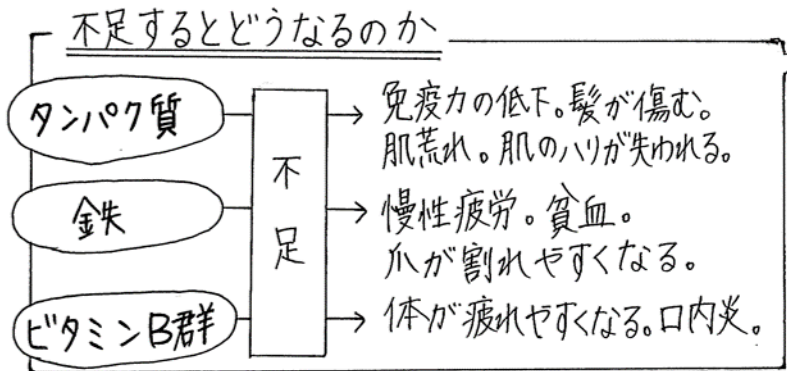 不足するとどうなるのか
タンパク質
不足
免疫力の低下。髪が傷む。
肌荒れ。肌のハリが失われる。
鉄
慢性疲労。貧血。
爪が割れやすくなる。
ビタミンB群
体が疲れやすくなる。口内炎。